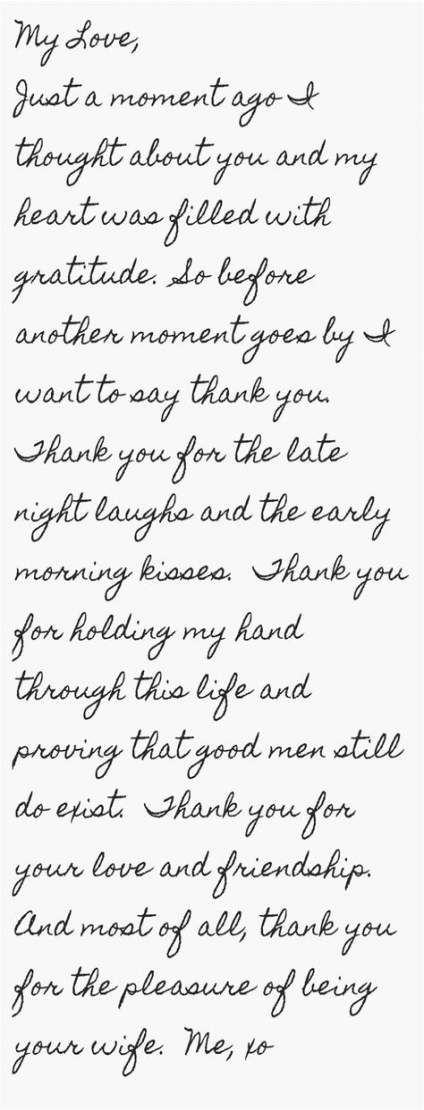 My Love,
Just a moment ago I
thought about you and my
heart was filled with
gratitude. So before
another moment goes by I
want to say thank you.
Thank you for the late
night laughs and the early
morning kisses. Thank you
for holding my hand
through this life and
proving that good men still
do exist. Thank you for
your love and friendship.
And most of all, thank you
for the pleasure of being
your wife. Me, xo